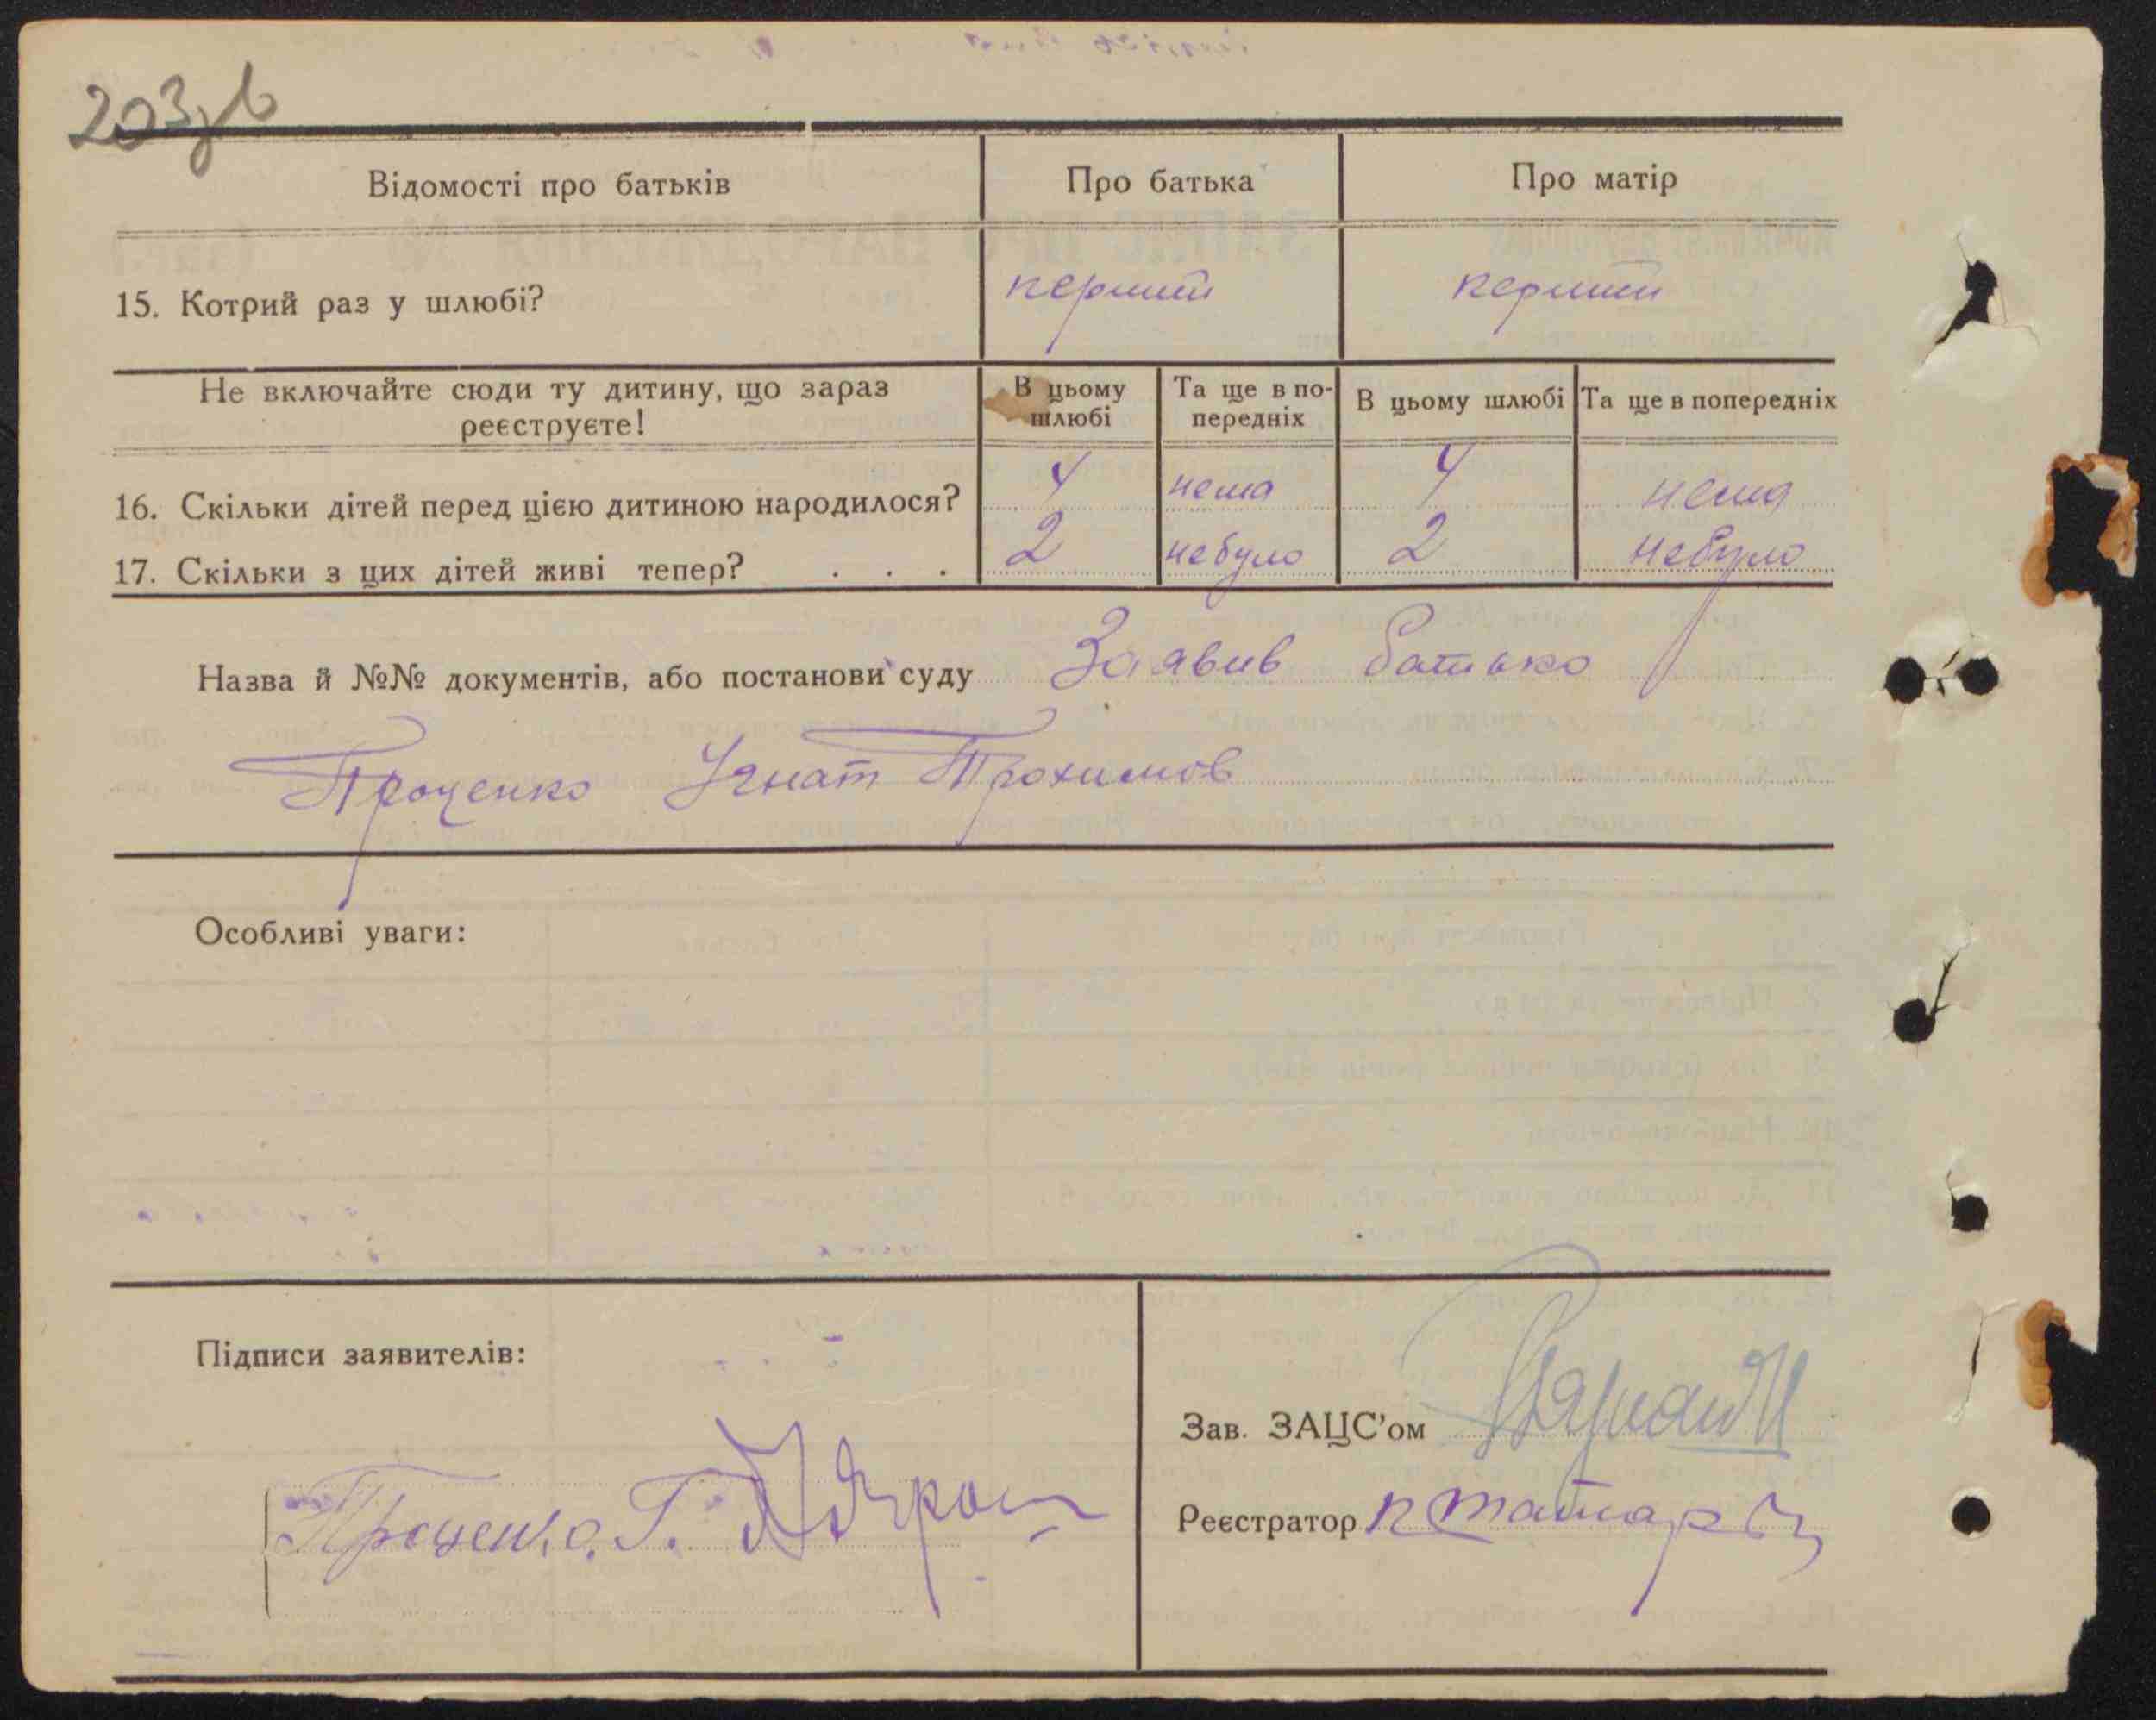 203 зв
Відомості про батьків Про батька Про матір
15. Котрий раз у шлюбі? перший перший
Не включайте сюди ту дитину, що зараз реєструєте! В цьому шлюбі Та ще в по-передніх В цьому шлюбі Та ще в попередніх
16. Скільки дітей перед цією дитиною народилося? 4 нема 4 нема
17. Скільки з цих дітей живі тепер? . . . 2 небуло 2 небуло
Назва й №№ документів, або постанови суду Заявив батько
Проценко Ігнат Трохимов
Особливі уваги:
Підписи заявителів:
Зав. ЗАЦС'ом
Проценко. Г.
Реєстратор